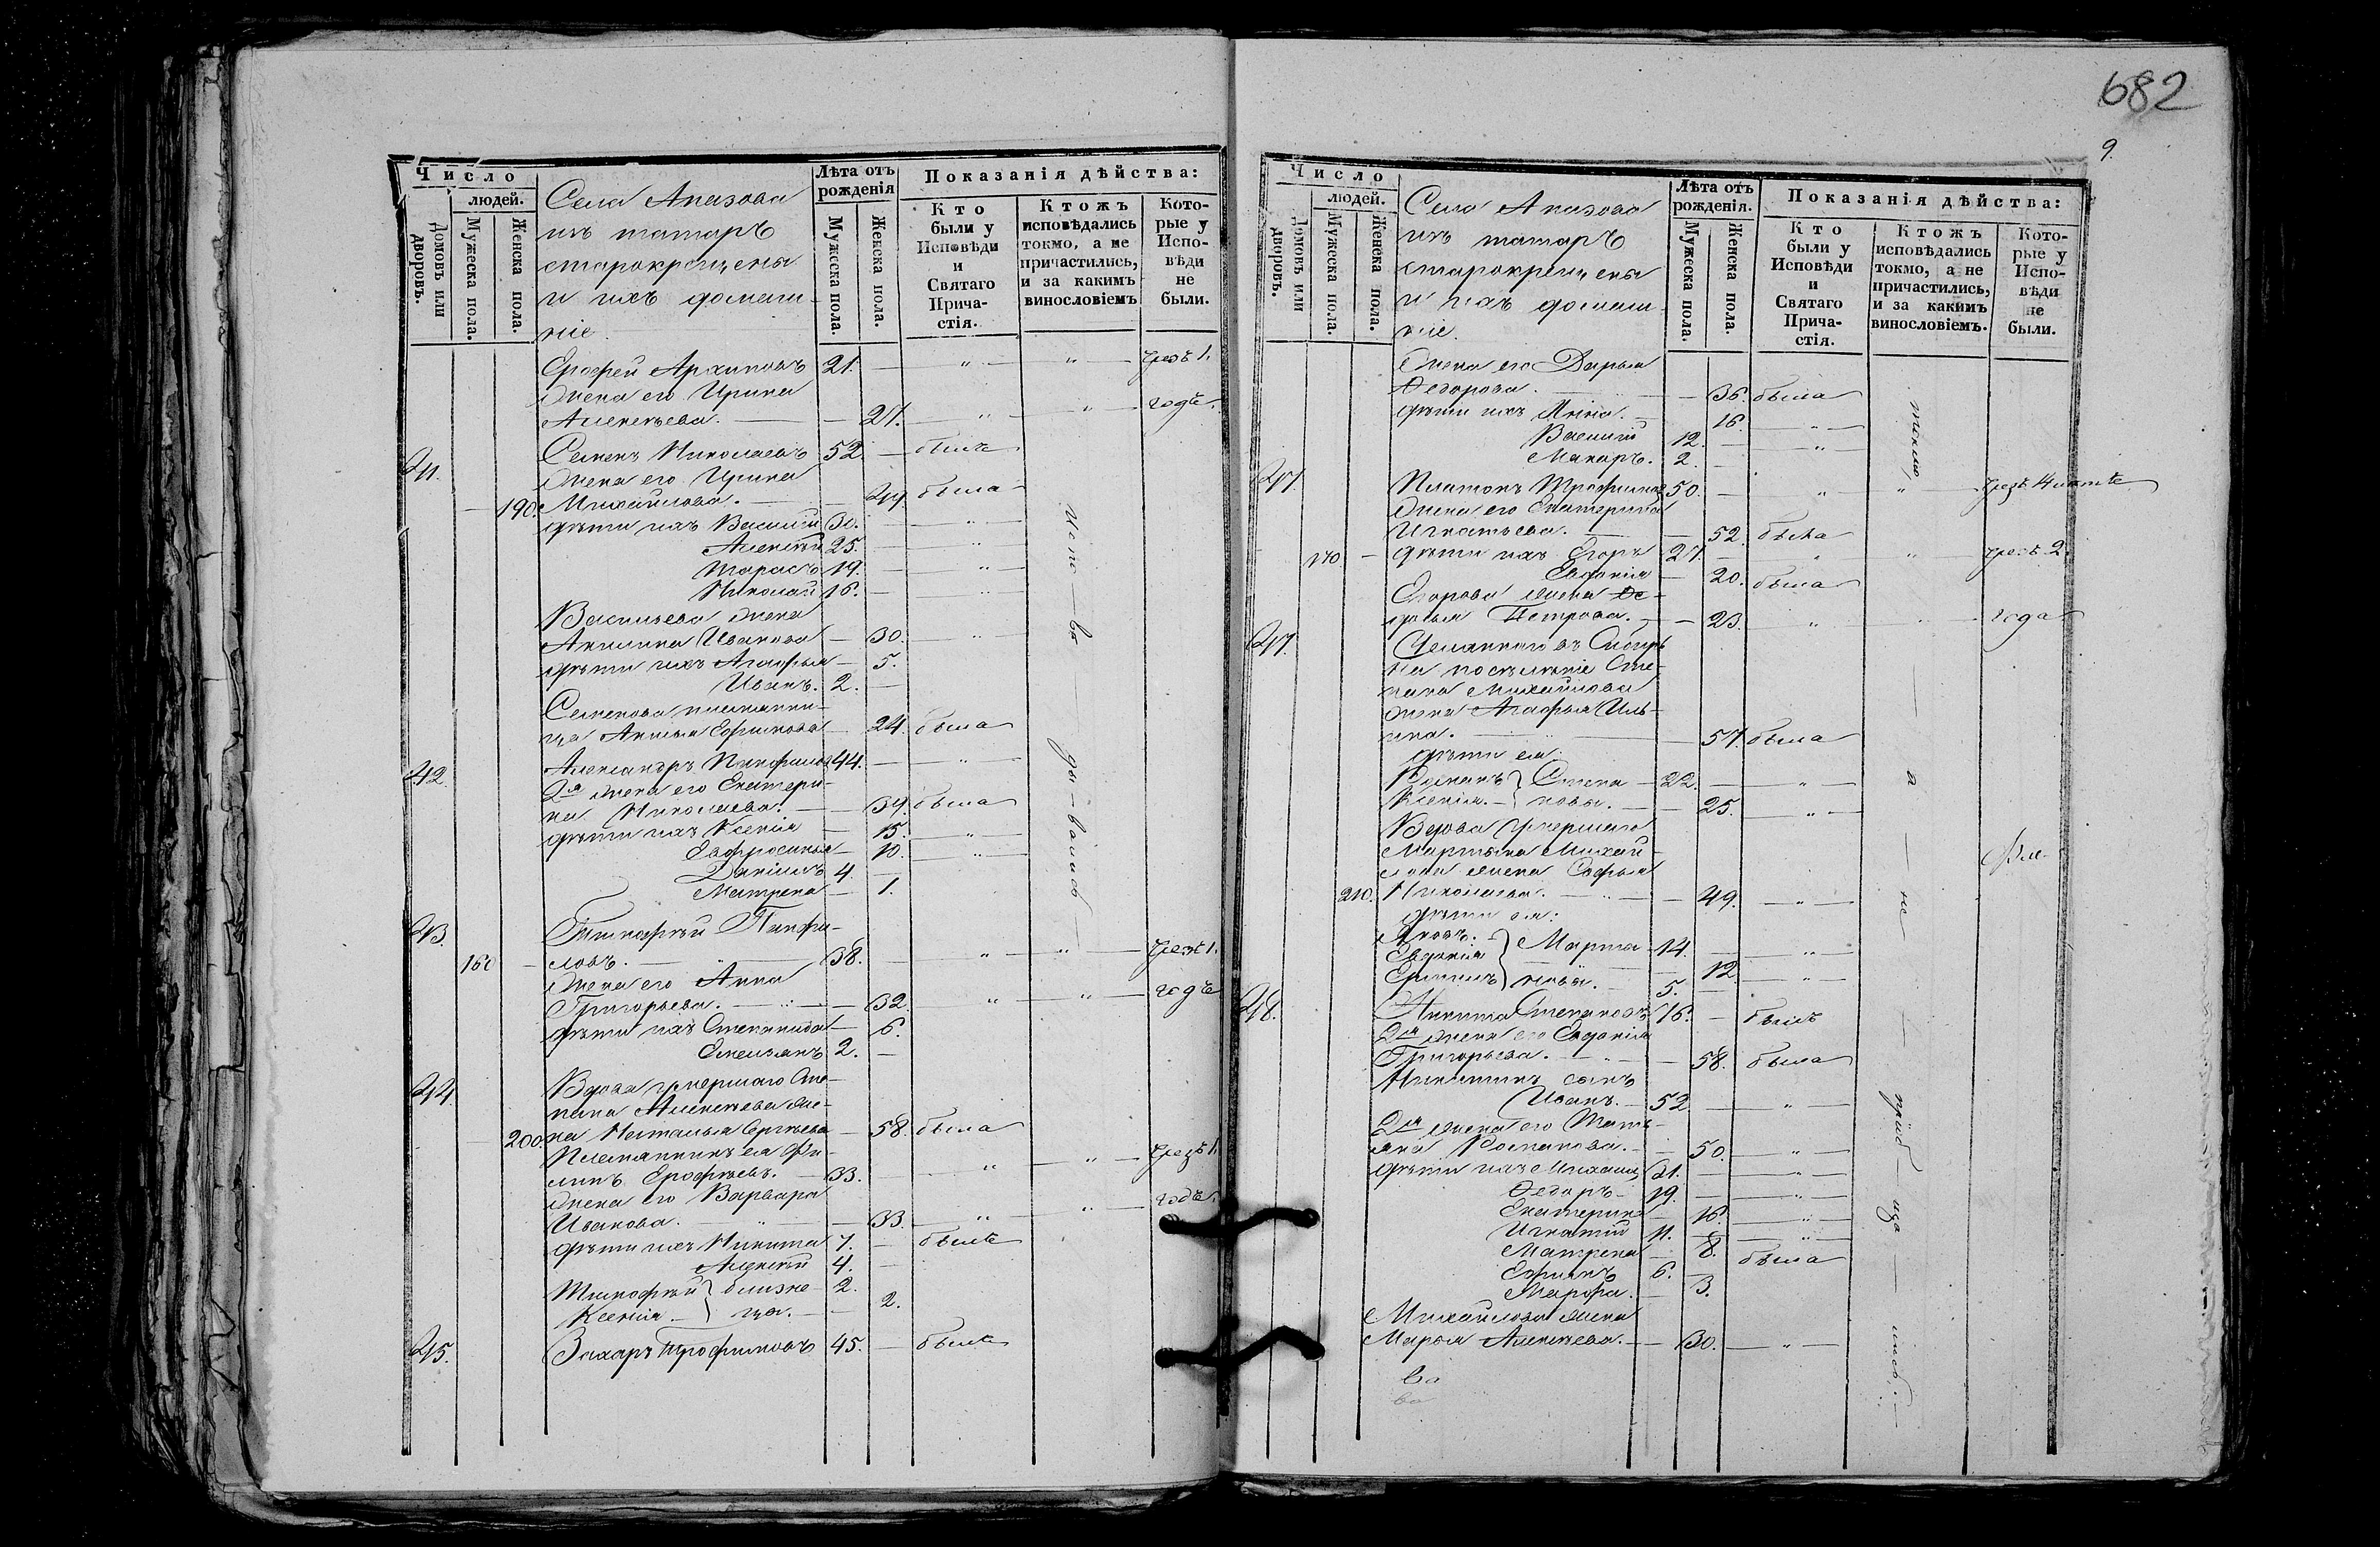 682
9.
Число
людей.
Домовъ или дворовъ.
Мужеска пола.
Женска пола.
Села Апазова
изъ татаръ
старокрещены
и ихъ домаш-
ніе.
Лѣта отъ рожденія
Мужеска пола.
Женска пола.
Показанія дѣйства:
Кто были у Исповѣди и Святаго Прича-стія.
Ктожъ исповѣдались токмо, а не причастились, и за какимъ винословіемъ
Кото-рые у Испо-вѣди не были.
Ерофей Архиповъ 21. — " — " — чрезъ 1.
Жена его Ирина
Алексѣева. — — 21. — " — " — годъ.
41. Семенъ Николаевъ 52 — былъ
Жена его Ирина
190. Михайлова. — — 49 была
дѣти ихъ Василій 30. — " —
Алексѣй 25. — " —
Тарасъ 19. — " —
Николай 16. — " —
Васильева жена
Акилина Иванова — 30. — " —
дѣти ихъ Агафья — 5.
Иванъ. 2. —
Семенова племянни-
ца Анисья Ефимова — 24. была
42 Александръ Панфиловъ 44. — " —
2я жена его Екатери-
на Николаева. — 34. была
дѣти ихъ Ксенія — 15. — " —
Евфросинья — 10. — " —
Даніилъ 4. —
Матрена — 1.
Испо — вѣ
ды — вались —
43. Тимофѣй Панфи-
160 — ловъ. — " — 38. — " — " — чрезъ 1.
Жена его Анна
Григорьева. — " — — 32. — " — " — годъ
дѣти ихъ Степанида — 6.
Емельянъ 2. —
44. Вдова умершаго Сте-
пана Алексѣева же-
200. на Наталья Сергѣева — 58. была
Племянникъ ея Фи-
липъ Ерофѣевъ. — 33. — " — " — чрезъ 1.
Жена его Варвара
Иванова. — " — — 33. — " — " — годъ.
дѣти ихъ Никита 7. — былъ
Алексѣй 4. —
Тимофѣй } близне- 2.
Ксенія — } цы. — — 2.
45. Захаръ Трофимовъ 45. — былъ
Число
людей.
Домовъ или дворовъ.
Мужеска пола.
Женска пола.
Села Апазова
изъ татаръ
старокрещены
и ихъ домаш-
ніе.
Лѣта отъ рожденія.
Мужеска пола.
Женска пола.
Показанія дѣйства:
Кто были у Исповѣди и Святаго Прича-стія.
Ктожъ исповѣдались токмо, а не причастились, и за какимъ винословіемъ.
Кото-рые у Испо-вѣди не были.
Жена его Дарья
Ѳедорова. — — 36. была
дѣти ихъ Анна. — 16. — " —
Василій 12. — " —
Макаръ. 2. —
47. Платонъ Трофимовъ 50. — " — " — чрезъ 4 лѣтъ
Жена его Екатерина
Игнатьева. — — 52. была
170 — дѣти ихъ Егоръ 27. — " — " — чрезъ 2.
Евдокія — 20. была
Егорова жена Ѳе-
досья Петрова. — — 23. — " — " — года
47. Сосланнаго въ Сибирь
на поселѣніе Сте-
пана Михайлова
жена Агафья Иль-
ина. — — 57. была
дѣти ея:
Романъ } Степа- — 22. — " —
Ксенія. — } новы. — — 25. — " —
Вдова умершаго
Мартына Михай-
лова жена Софья
210. Николаева. — " — — 49. — " —
дѣти ея:
Яковъ. —
Евдокія } Марты- — 14. — " —
Ермилъ } новы. — 12 — " —
5. —
48. Никита Степановъ 76. — былъ
2я жена его Евдокія
Григорьева. — " — — 58. была
Никитинъ сынъ
Иванъ. — 52 — " —
2я жена его Тать-
яна Романова. — — 50. — " —
дѣти ихъ Михаилъ 21. — " —
Ѳедоръ — 19. — " —
Екатерина — 16. — " —
Игнатій 11. — " —
Матрена — 8. была
Ефимъ 6. —
Марфа. — 3.
Михайлова жена
Марья Алексѣева. — — 30. — " —
токмо,
— а — не —
пріоб — ща — лись. —